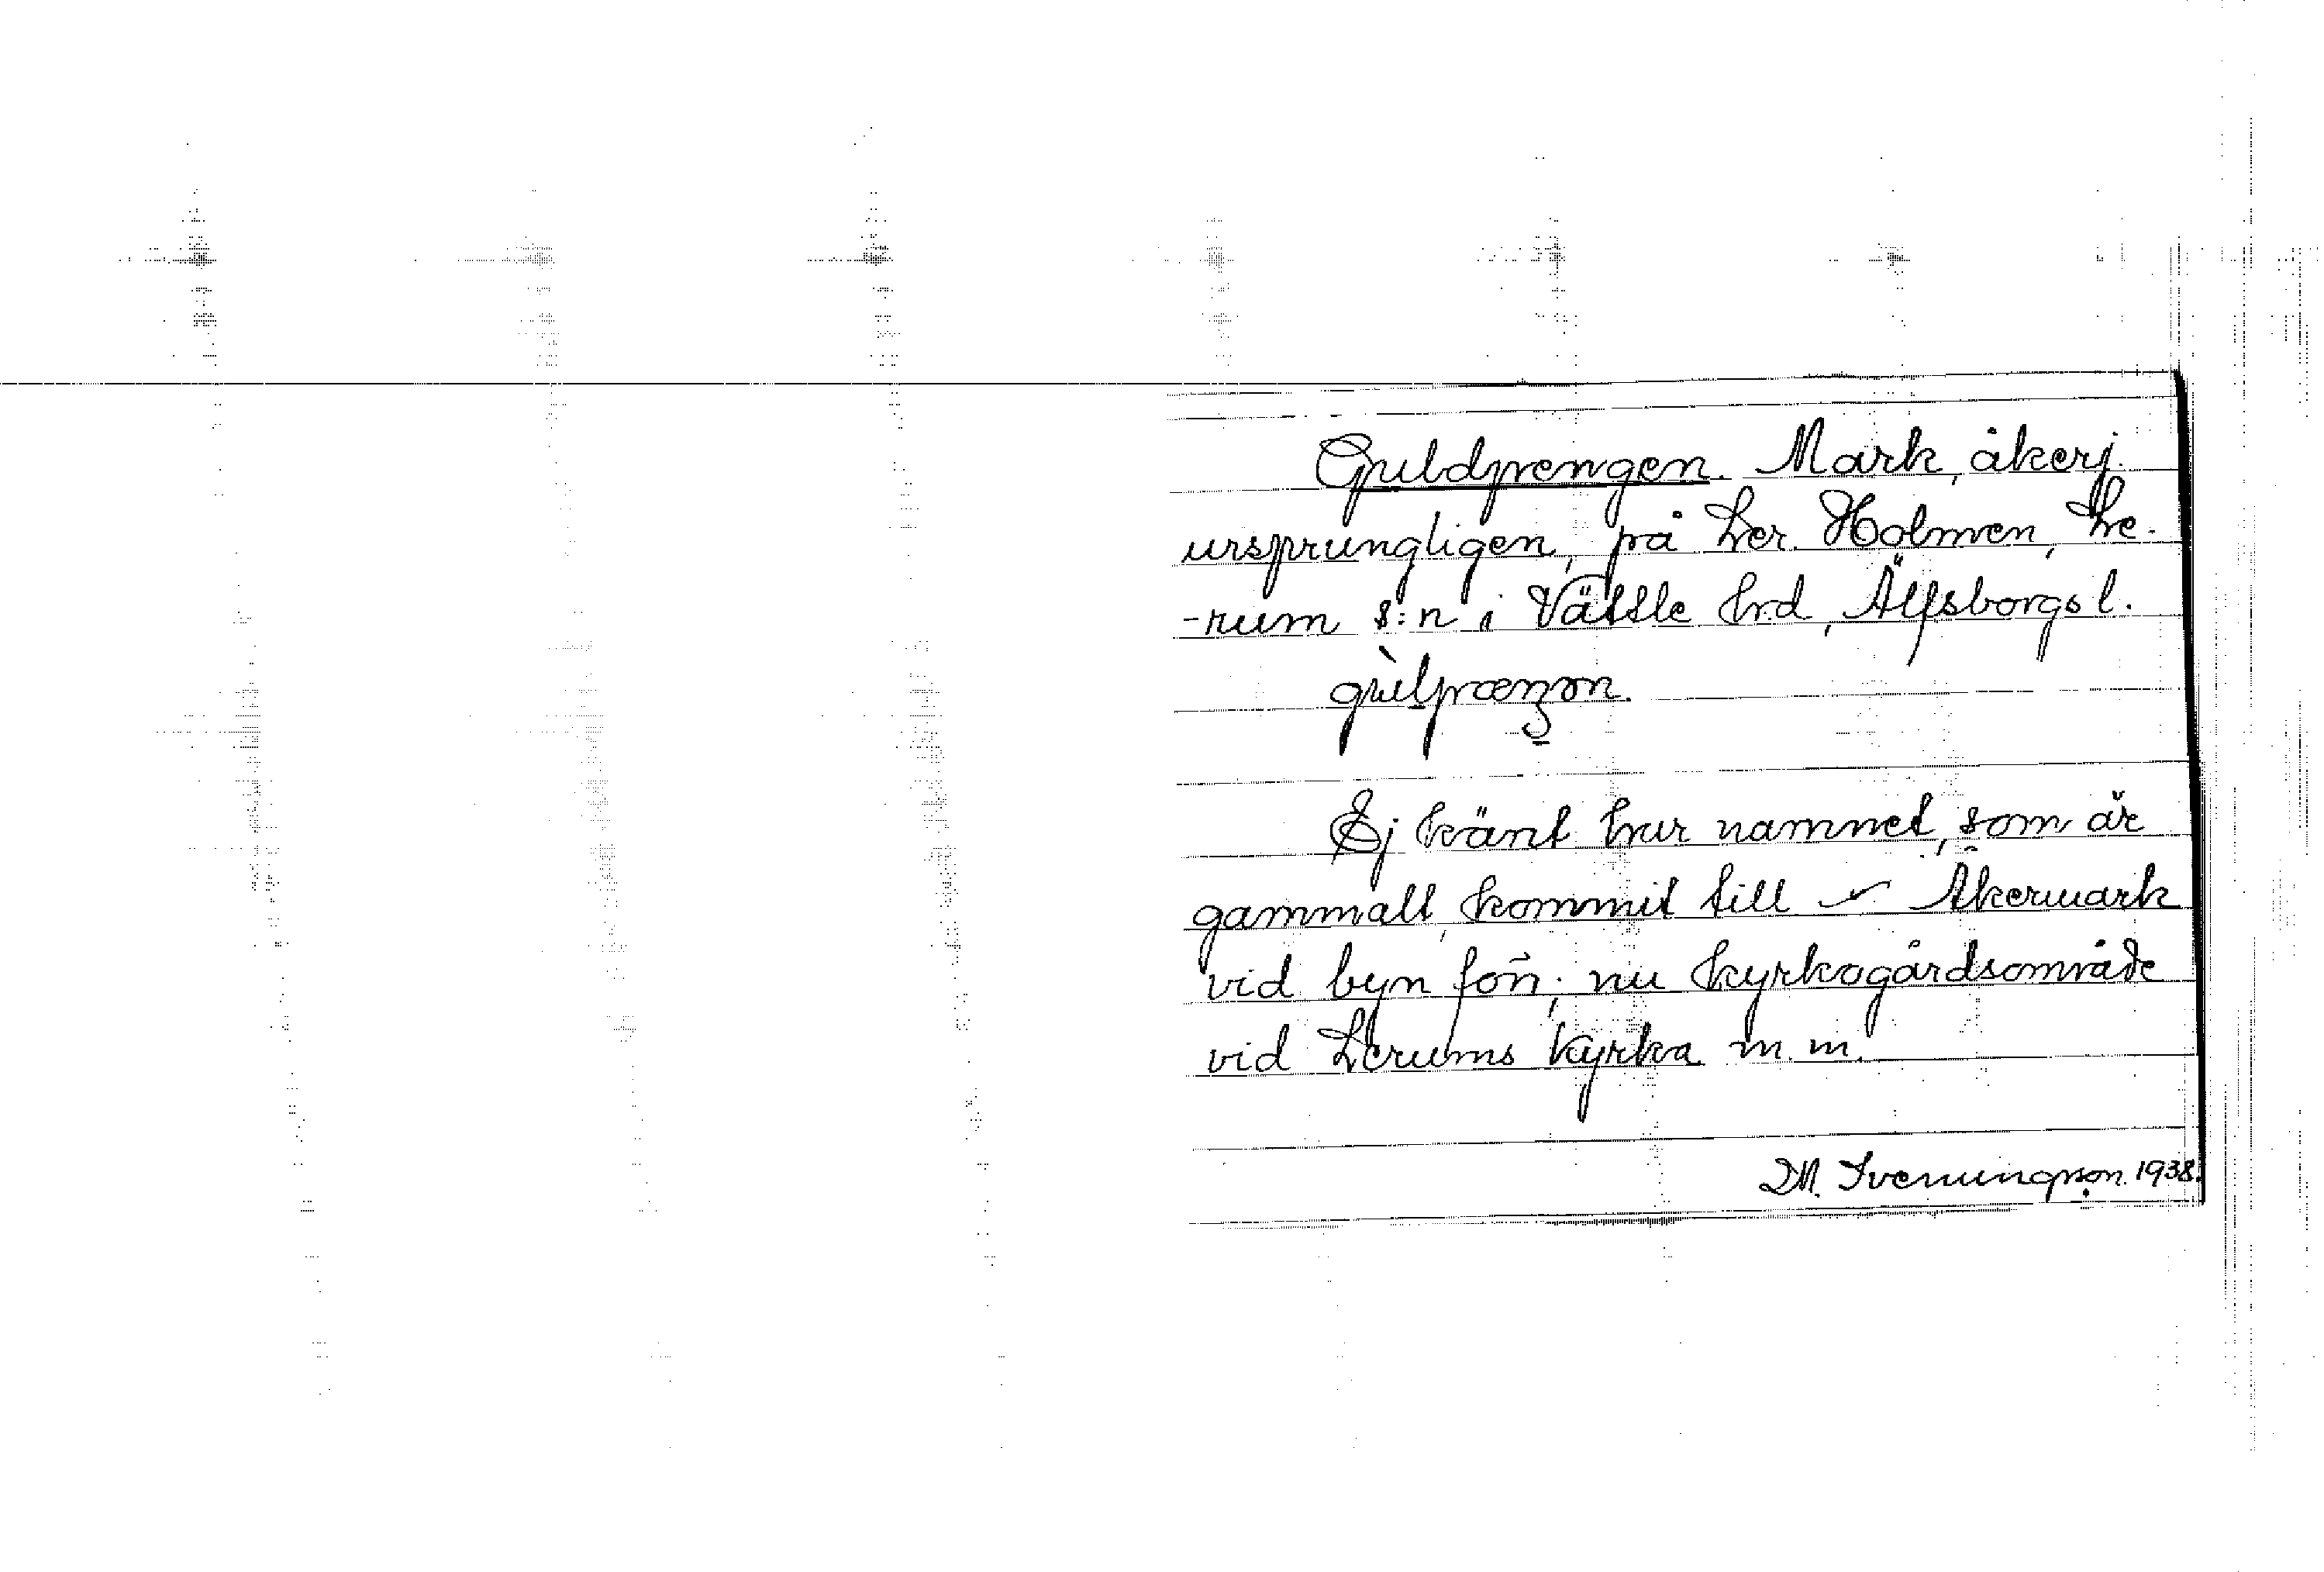 Guldprengen. Mark, åkerj.
ursprungligen, på Ler. Holmen, Le-
-rum s:n i Vättle hrd, Älfsborgs l.
Ej känt hur namnet, som är
gammalt, kommit till — Åkermark
vid byn förr; nu kyrkogårdsområde
vid Lerums kyrka m.m.
1938.